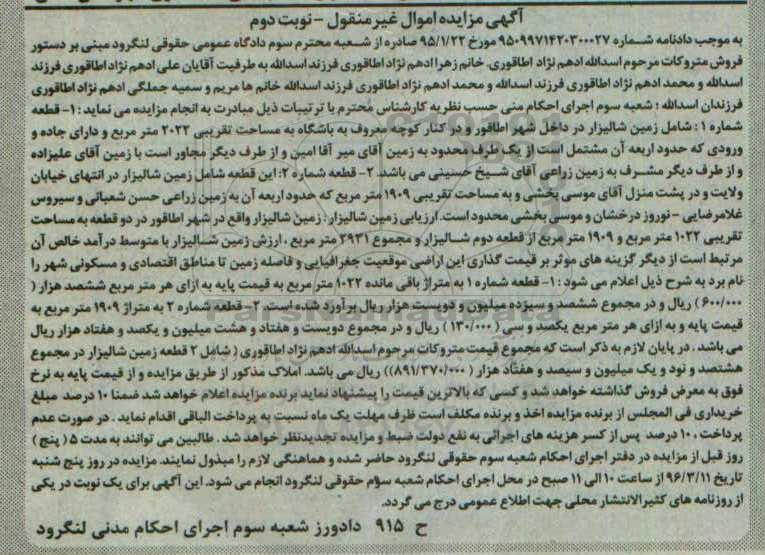 آگهی مزایده اموال غیر منقول - نوبت دوم
به موجب دادنامه شماره ۹۵۰۹۹۷۱۴۲۰۳۰۰۰۲۷ مورخ ۹۵/۱/۲۲ صادره از شعبه محترم سوم دادگاه عمومی حقوقی لنگرود مبنی بر دستور
فروش متروکات مرحوم اسدالله ادهم نژاد اطاقوری. خانم زهرا ادهم نژاد اطاقوری فرزند اسدالله به طرفیت آقایان علی ادهم نژاد اطاقوری فرزند
اسدالله و محمد ادهم نژاد اطاقوری فرزند اسدالله و محمد ادهم نژاد اطاقوری فرزند اسدالله خانم ها مریم و سمیه جملگی ادهم نژاد اطاقوری
فرزندان اسدالله : شعبه سوم اجرای احکام منی حسب نظریه کارشناس محترم با ترتیبات ذیل مبادرت به انجام مزایده می نماید : ۱- قطعه
شماره ۱ : شامل زمین شالیزار در داخل شهر اطاقور و در کنار کوچه معروف به باشگاه به مساحت تقریبی ۲۰۲۲ متر مربع و دارای جاده و
ورودی که حدود اربعه آن مشتمل است از یک طرف محدود به زمین آقای میر آقا امین و از طرف دیگر مجاور است با زمین آقای علیزاده
و از طرف دیگر مشرف به زمین زراعی آقای شیخ حسینی می باشد. ۲- قطعه شماره ۲: این قطعه شامل زمین شالیزار در انتهای خیابان
ولایت و در پشت منزل آقای موسی بخشی و به مساحت تقریبی ۱۹۰۹ متر مربع که حدود اربعه آن به زمین زراعی حسن شعبانی و سیروس
غلامرضایی - نوروز درخشان و موسی بخشی محدود است. ارزیابی زمین شالیزار : زمین شالیزار واقع در شهر اطاقور در دو قطعه به مساحت
تقریبی ۱۰۲۲ متر مربع و ۱۹۰۹ متر مربع از قطعه دوم شالیزار و مجموع ۲۹۳۱ متر مربع . ارزش زمین شالیزار با متوسط درآمد خالص آن
مرتبط است از دیگر گزینه های موثر بر قیمت گذاری این اراضی موقعیت جغرافیایی و فاصله زمین تا مناطق اقتصادی و مسکونی شهر را
نام برد به شرح ذیل اعلام می شود : ۱- قطعه شماره ۱ به متراژ باقی مانده ۱۰۲۲ متر مربع به قیمت پایه به ازای هر متر مربع ششصد هزار (
۶۰۰/۰۰۰) ریال و در مجموع ششصد و سیزده میلیون و دویست هزار ریال برآورد شده است. ۲- قطعه شماره ۲ به متراژ ۱۹۰۹ متر مربع به
قیمت پایه و به ازای هر متر مربع یکصد و سی ( ۱۳۰/۰۰۰) ریال و در مجموع دویست و هفتاد و هشت میلیون و یکصد و هفتاد هزار ریال
می باشد . در پایان لازم به ذکر است که مجموع قیمت متروکات مرحوم اسدالله ادهم نژاد اطاقوری ( شامل ۲ قطعه زمین شالیزار در مجموع
هشتصد و نود و یک میلیون و سیصد و هفتاد هزار ( ۸۹۱/۳۷۰/۰۰۰)) ریال می باشد. املاک مذکور از طریق مزایده و از قیمت پایه به نرخ
فوق به معرض فروش گذاشته خواهد شد و کسی که بالاترین قیمت را پیشنهاد نماید برنده مزایده اعلام خواهد شد ضمنا ۱۰ درصد مبلغ
خریداری فی المجلس از برنده مزایده اخذ و برنده مکلف است ظرف مهلت یک ماه نسبت به پرداخت الباقی اقدام نماید . در صورت عدم
پرداخت ، ۱۰ درصد پس از کسر هزینه های اجرائی به نفع دولت ضبط و مزایده تجدیدنظر خواهد شد . طالبین می توانند به مدت ۵ ( پنج )
روز قبل از مزایده در دفتر اجرای احکام شعبه سوم حقوقی لنگرود حاضر شده و هماهنگی لازم را مبذول نمایند. مزایده در روز پنج شنبه
تاریخ ۹۶/۳/۱۱ از ساعت ۱۰ الی ۱۱ صبح در محل اجرای احکام شعبه سوم حقوقی لنگرود انجام می شود. این آگهی برای یک نوبت در یکی
از روزنامه های کثیرالانتشار محلی جهت اطلاع عمومی درج می گردد.
ح ۹۱۵ دادورز شعبه سوم اجرای احکام مدنی لنگرود